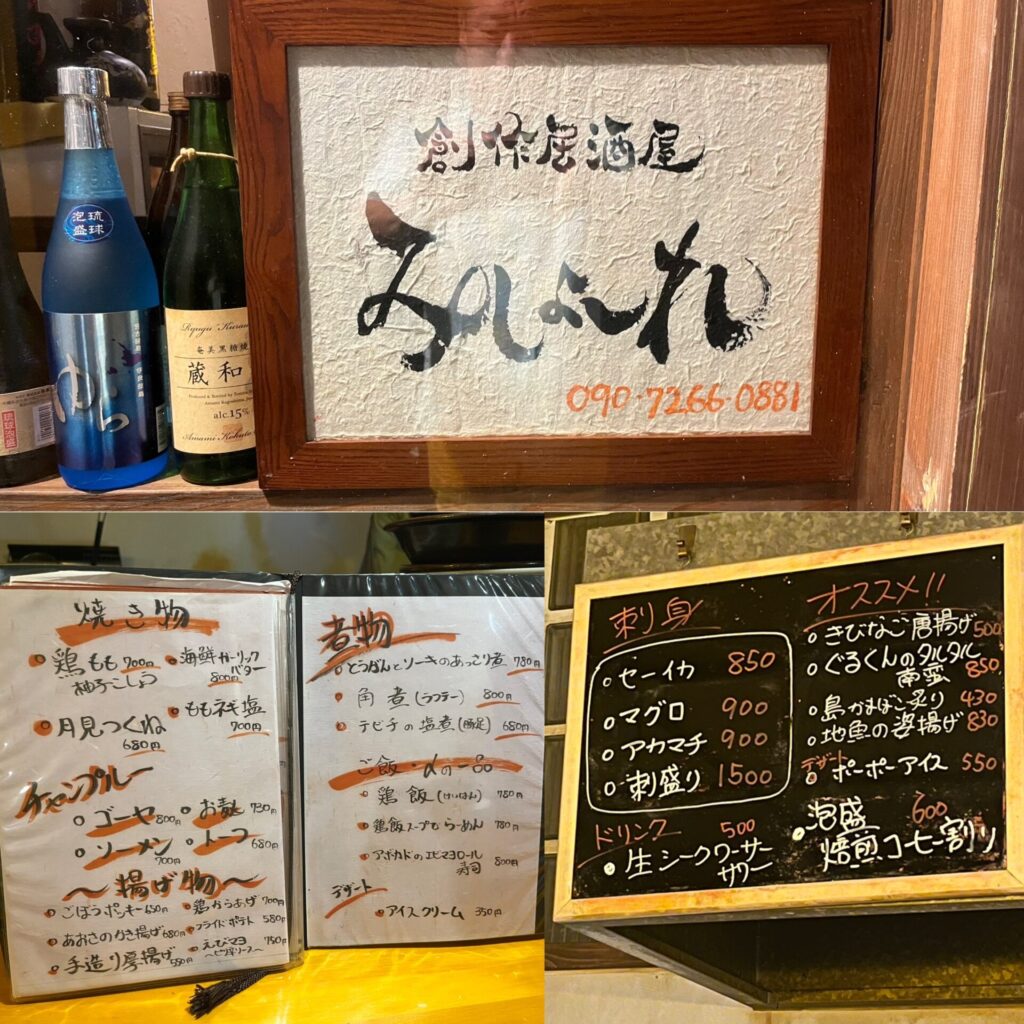 創作居酒屋
みの(よ)れ
090-7266-0881
琉球
泡盛
Ryugu Kuran
奄美黒糖焼
蔵和
alc.15%
琉球泡盛
焼き物
鶏もも 700円
柚子こしょう
海鮮ガーリック
バター
800円
月見つくね
680円
ももネギ塩
700円
チャンプルー
ゴーヤ 800円
お麩 730円
ソーメン 700円
トーフ 680円
～揚げ物～
ごぼうポッキー 650円
鶏からあげ 700円
あおさのかき揚げ 680円
フライドポテト 580円
手造り厚揚げ 580円
えびマヨ 750円
煮物
とうがんとソーキのあっさり煮 780円
角煮(ラフテー) 800円
テビチの塩煮(豚足) 680円
ご飯・〆の一品
鶏飯(けいはん) 780円
鶏飯スープもらーめん 780円
アボカドのエビマヨロール
寿司 800円
デザート
アイスクリーム 350円
刺身
セーイカ 850
マグロ 900
アカマチ 900
刺盛り 1500
ドリンク 500
生シークワーサー
サワー
オススメ!!
きびなご唐揚げ 500
ぐるくんのタルタル
南蛮 850
島かまぼこ炙り 430
地魚の姿揚げ 830
デザート
ポーポーアイス 550
泡盛 600
焙煎コーヒー割り